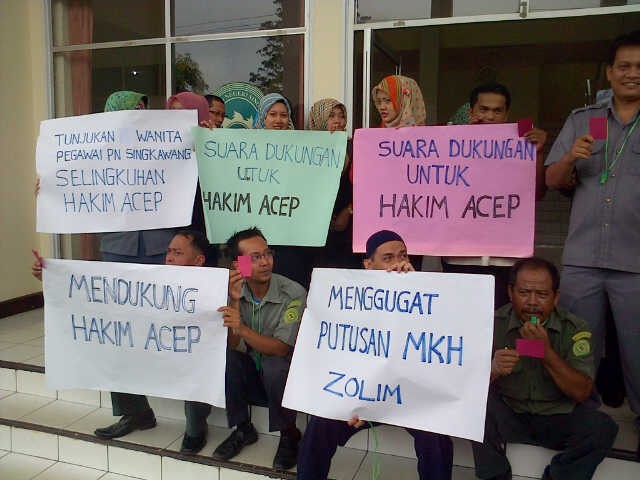 TUNJUKAN WANITA
PEGAWAI PN SINGKAWANG
SELINGKUHAN
HAKIM ACEP
SUARA DUKUNGAN
UTUK
HAKIM ACEP
SUARA DUKUNGAN
UNTUK
HAKIM ACEP
MENDUKUNG
HAKIM ACEP
MENGGUGAT
PUTUSAN MKH
ZOLIM